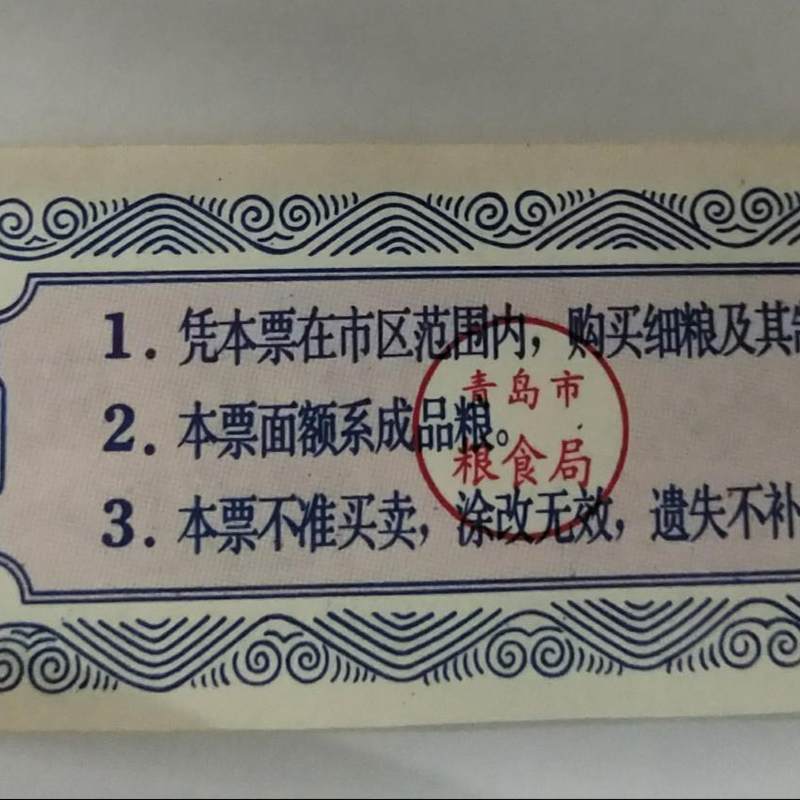 1. 凭本票在市区范围内，购买细粮及其
2. 本票面额系成品粮。
3. 本票不准买卖，涂改无效，遗失不补
青岛市
粮食局